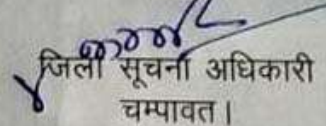 जिला सूचना अधिकारी
चम्पावत।